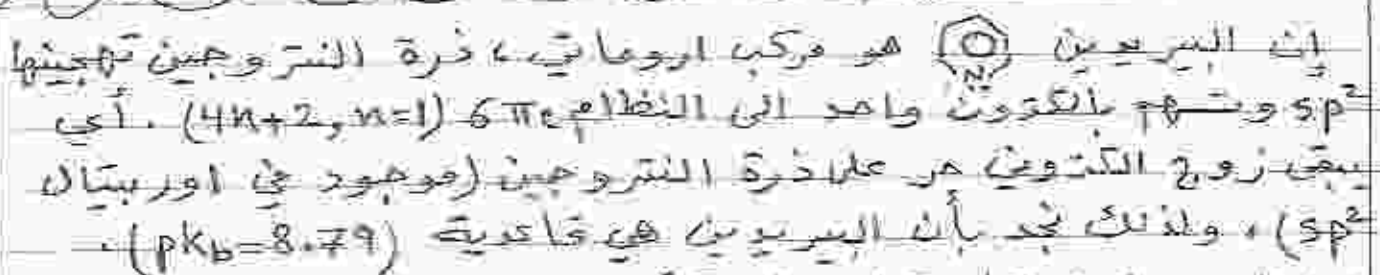 إن البيريدين N هو مركب اروماتي، ذرة النتروجين تهجينها
sp² وتسهم بالكترون واحد الى النظام 6πe (4n+2, n=1). أي
يبقى زوج الكتروني حر على ذرة النتروجين (موجود في اوربيتال
sp²)، ولذلك نجد بأن البيريدين هي قاعدية (pKb=8.79).